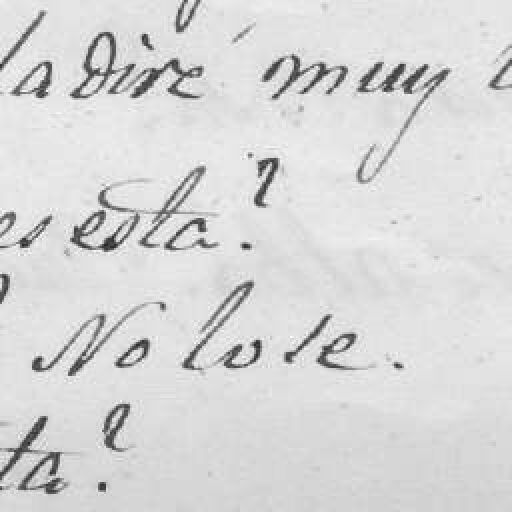 la diré muy
es esta?
No lo se.
ta?